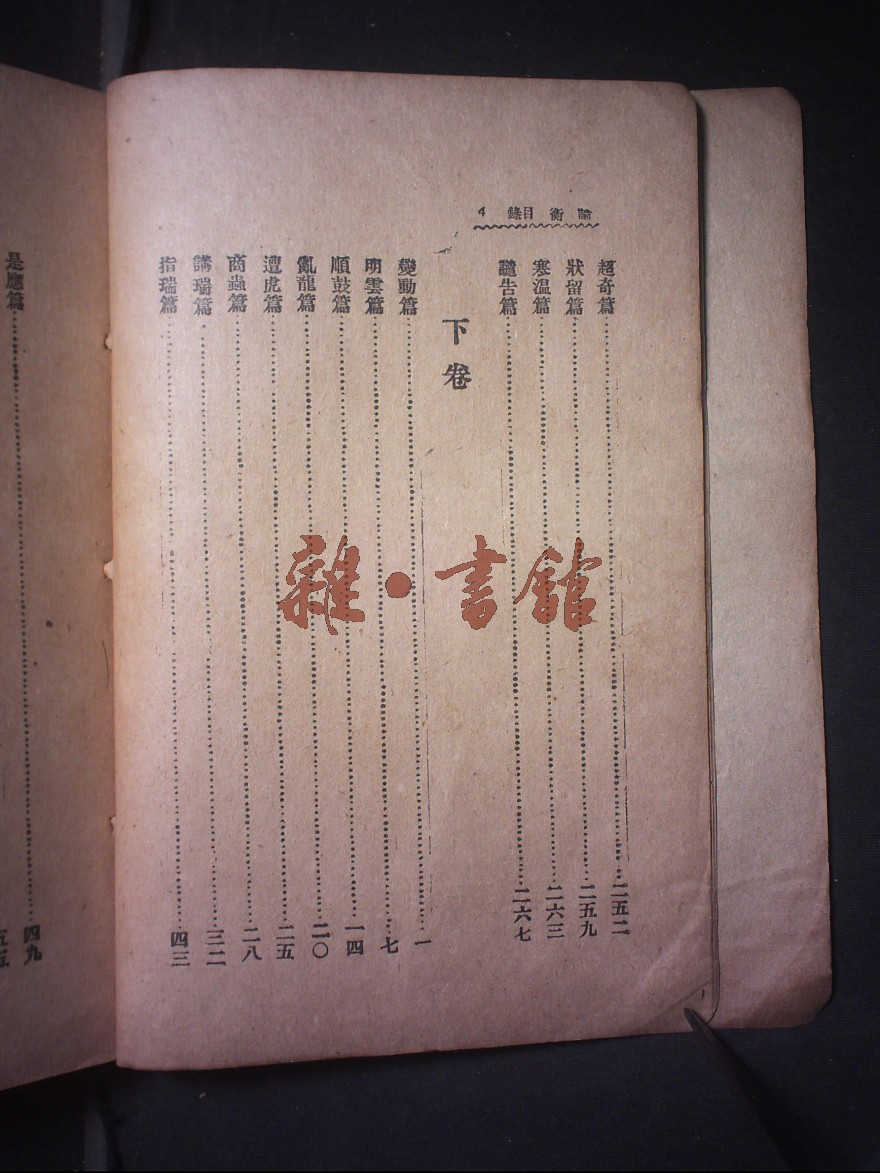 論衡 目錄 4
超奇篇 二五二
狀留篇 二五九
寒溫篇 二六三
譴告篇 二六七
下卷
變動篇 一
明雲篇 七
順鼓篇 一四
亂龍篇 二〇
遭虎篇 二五
商蟲篇 二八
講瑞篇 三二
指瑞篇 四三
是應篇 四九
雜·書館